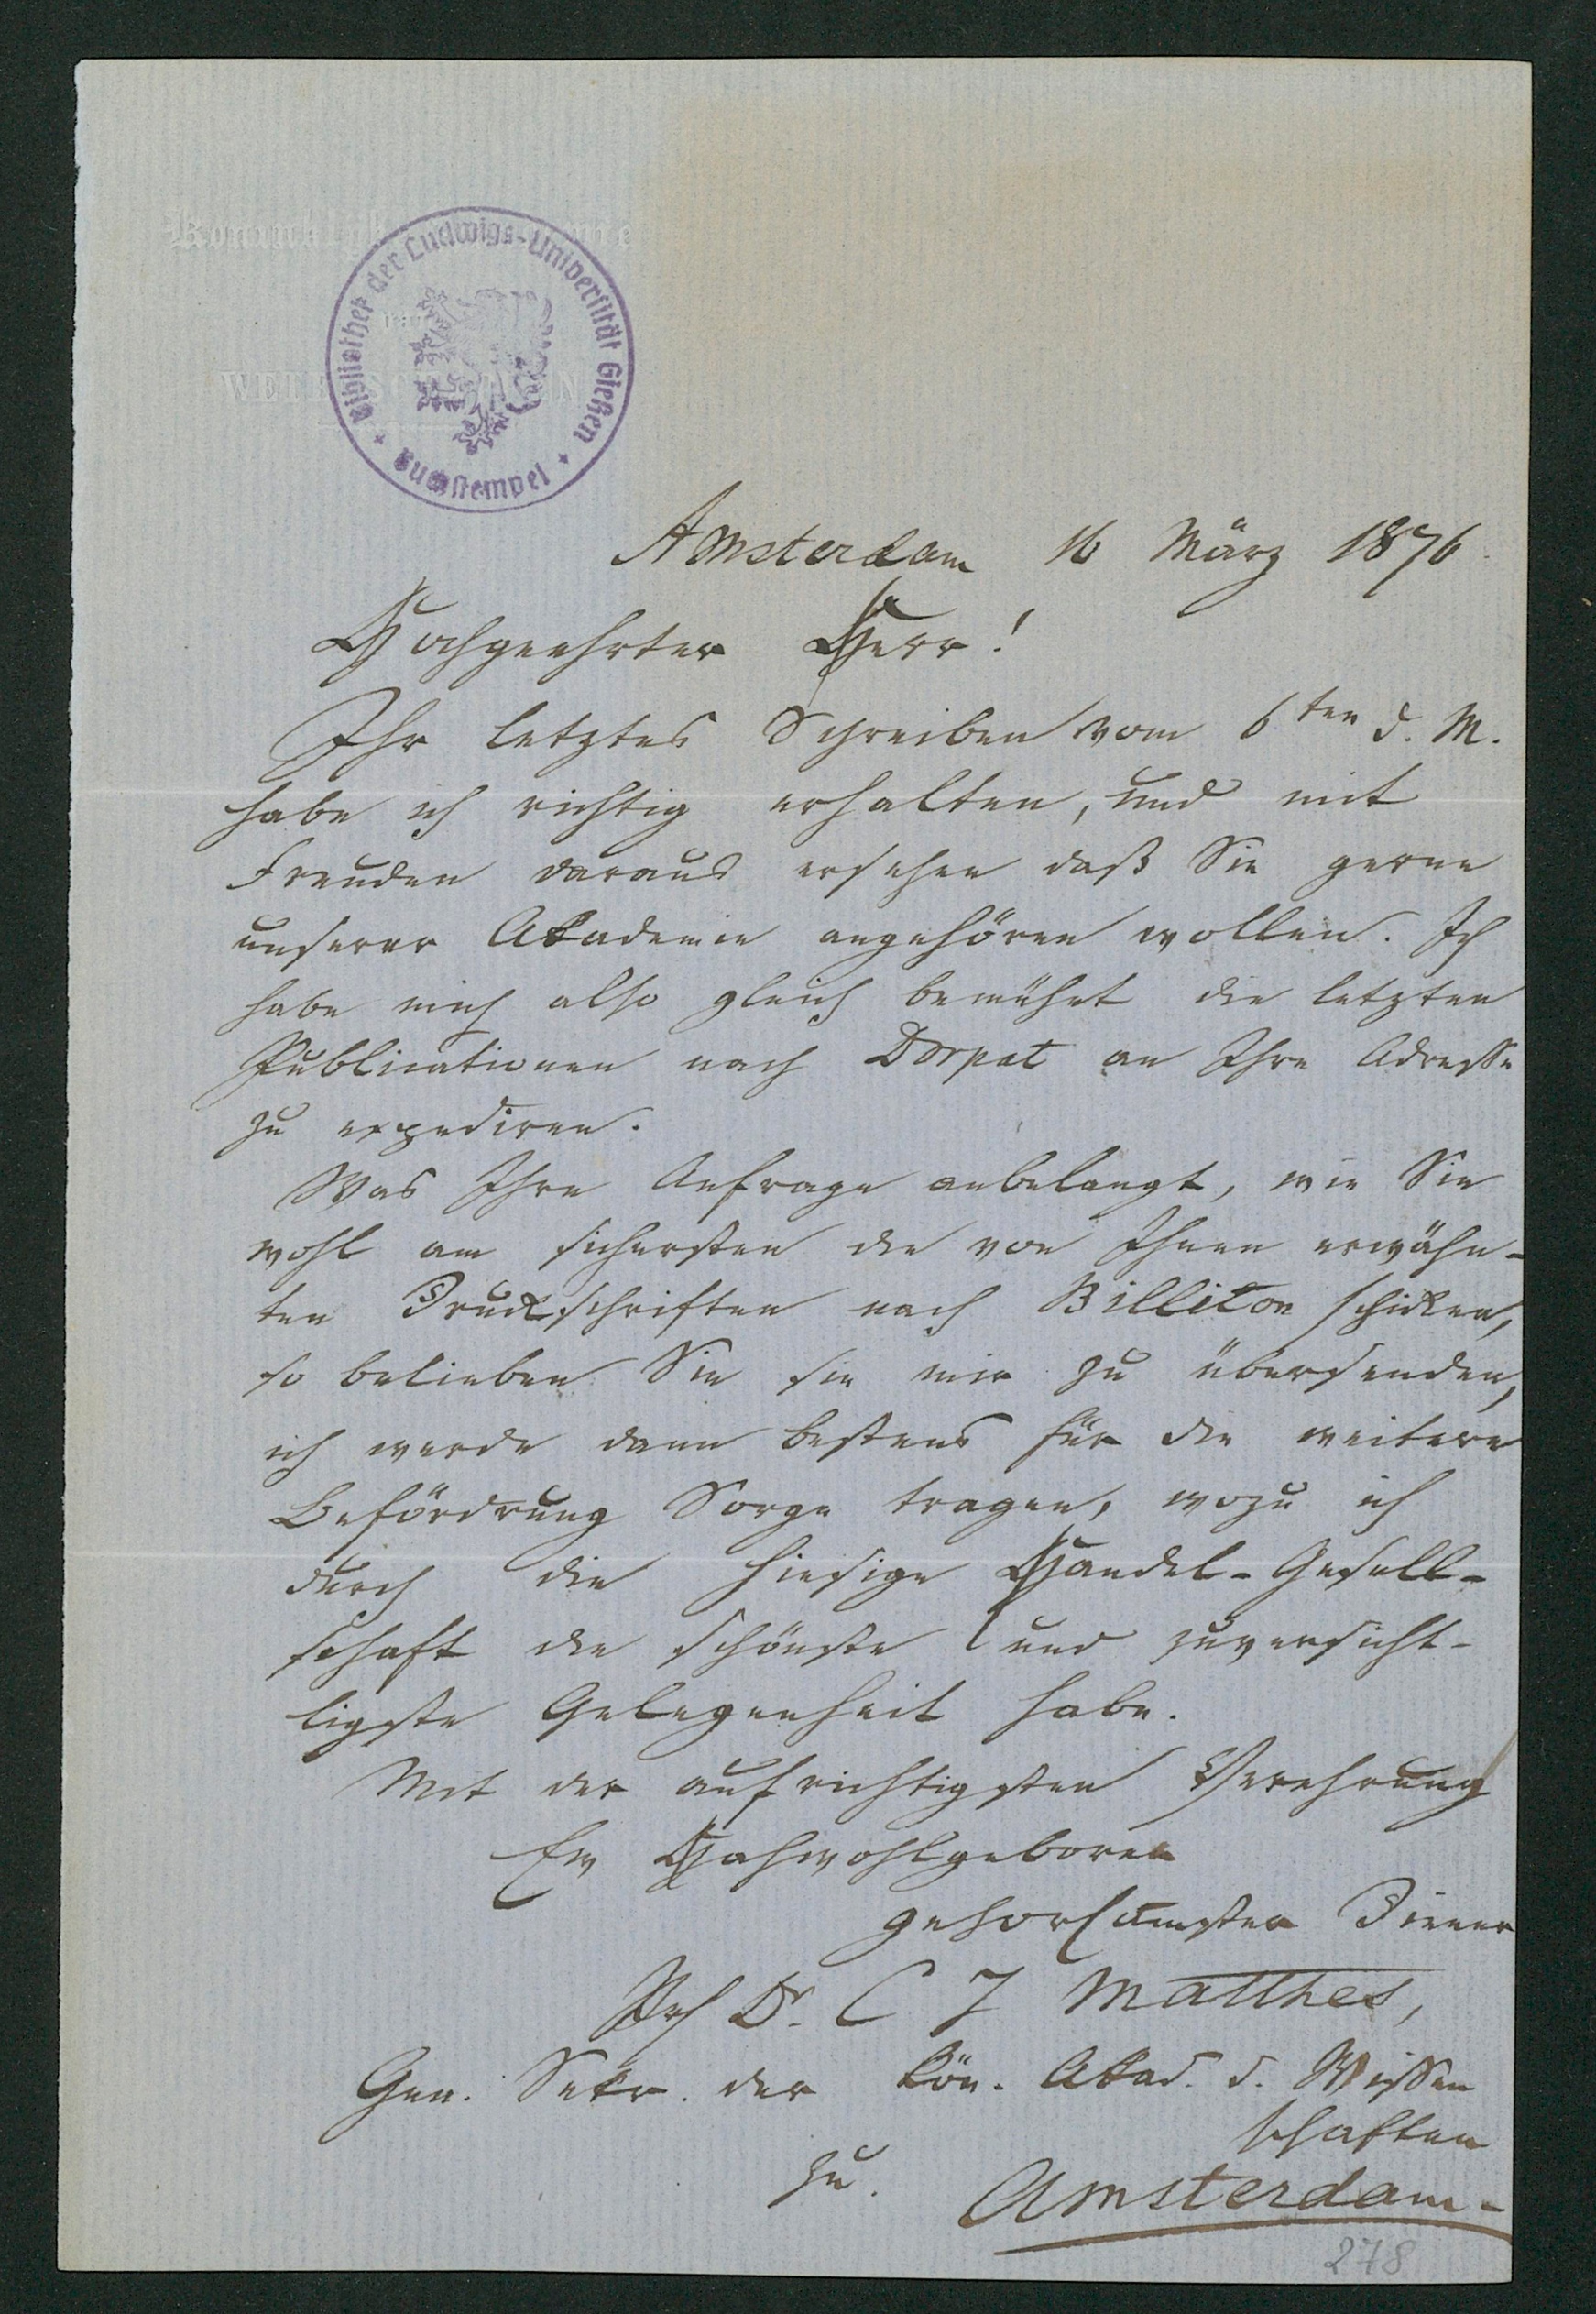 Koninklijke Akademie
van
WETENSCHAPPEN
Bibliothek der Ludwigs-Universität Gießen
Buchstempel
Amsterdam 16 März 1876.
Hochgeehrter Herr!
Ihr letztes Schreiben vom 6ten d. M.
habe ich richtig erhalten, und mit
Freuden daraus ersehen daß Sie gerne
unserer Akademie angehören wollen. Ich
habe mich also gleich bemühet die letzten
Publicationen nach Dorpat an Ihre Adresse
zu expediren.
Was Ihre Anfrage anbelangt, wie Sie
wohl am sichersten die von Ihnen erwähn-
ten Druckschriften nach Billiton schicken,
so belieben Sie sie mir zu übersenden,
ich werde dann bestens für die weitere
Befördrung Sorge tragen, wozu ich
durch die hiesige Handel-Gesell-
schaft die schönste und zuversicht-
ligste Gelegenheit habe.
Mit der aufrichtigsten Verehrung
Ew Hochwohlgeboren
gehorsamster Diener
Prf Dr. C J Matthes,
Gen. Sekr. der Kön. Akad. d. Wissen
schaften
zu. Amsterdam.
278